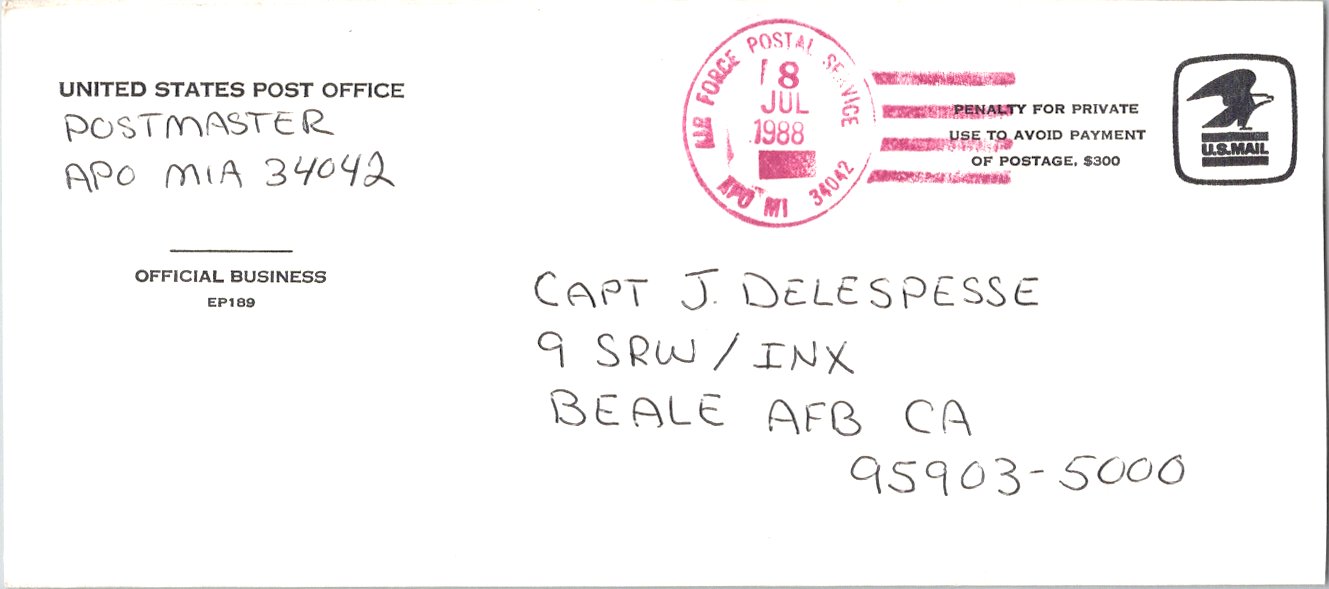 UNITED STATES POST OFFICE
POSTMASTER
APO MIA 34042
OFFICIAL BUSINESS
EP189
AIR FORCE POSTAL SERVICE
8
JUL
1988
APO MI 34042
PENALTY FOR PRIVATE
USE TO AVOID PAYMENT
OF POSTAGE, $300
U.S.MAIL
CAPT J. DELESPESSE
9 SRW / INX
BEALE AFB CA
95903-5000